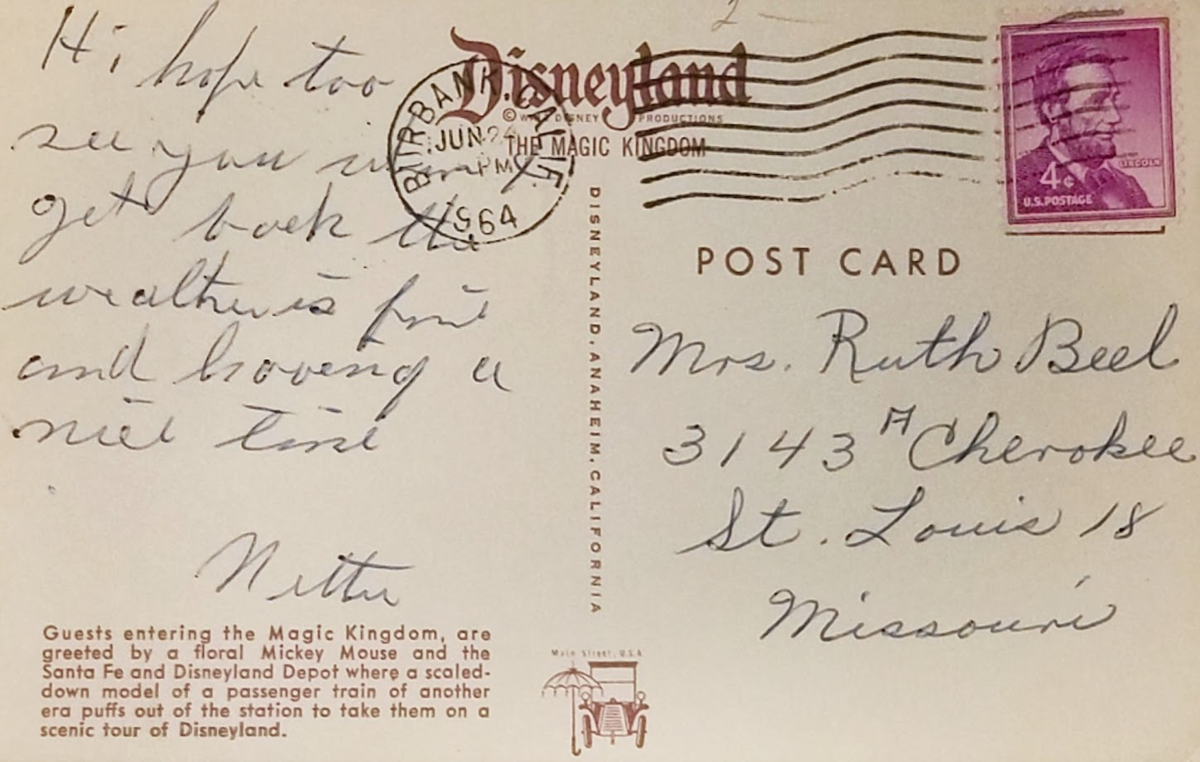 Hi, hope too
see you when I
get back the
weather is fine
and having a
nice time
Nettie
Guests entering the Magic Kingdom, are
greeted by a floral Mickey Mouse and the
Santa Fe and Disneyland Depot where a scaled-
down model of a passenger train of another
era puffs out of the station to take them on a
scenic tour of Disneyland.
2
Disneyland
© WALT DISNEY PRODUCTIONS
THE MAGIC KINGDOM
BURBANK, CALIF.
JUN 24
PM
1964
DISNEYLAND, ANAHEIM, CALIFORNIA
LINCOLN
4¢
U.S. POSTAGE
POST CARD
Mrs. Ruth Beel
3143 A Cherokee
St. Louis 18
Missouri
Main Street, U.S.A